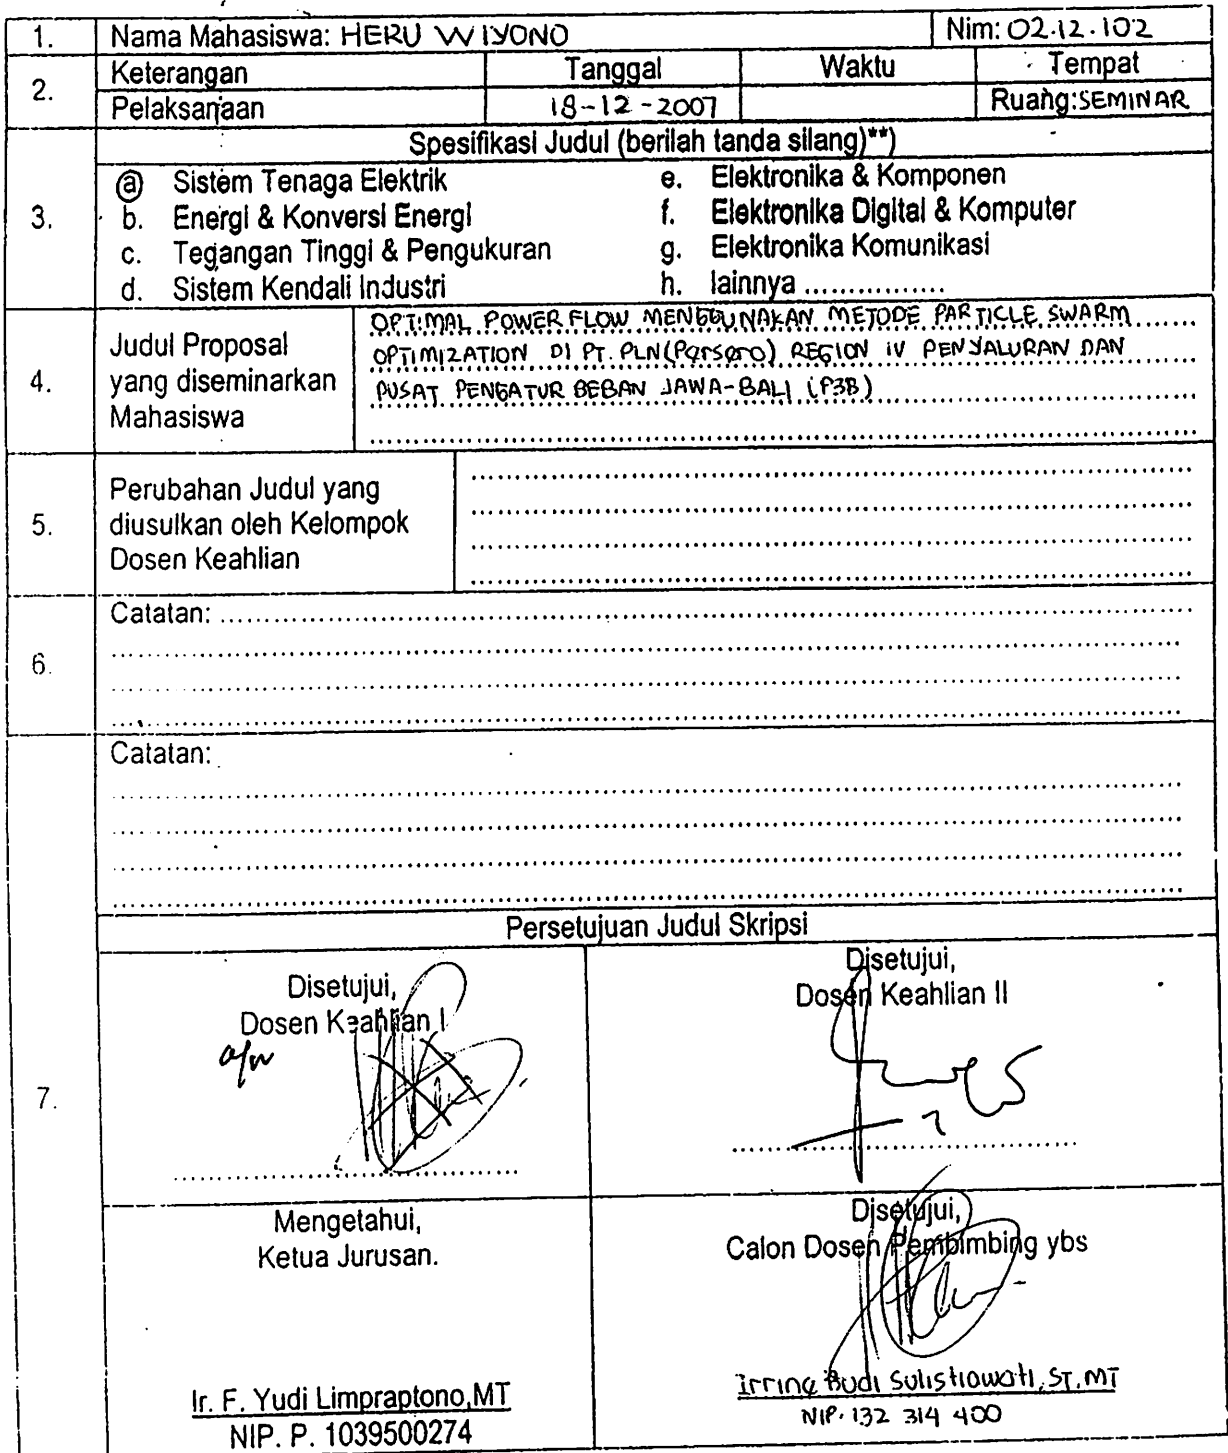 1. Nama Mahasiswa: HERU WIYONO Nim: 02.12.102
2. Keterangan Tanggal Waktu Tempat
Pelaksanaan 18-12-2007 Ruang: SEMINAR
Spesifikasi Judul (berilah tanda silang)**)
3.
a Sistem Tenaga Elektrik e. Elektronika & Komponen
b. Energi & Konversi Energi f. Elektronika Digital & Komputer
c. Tegangan Tinggi & Pengukuran g. Elektronika Komunikasi
d. Sistem Kendali Industri h. lainnya ................
4.
Judul Proposal
yang diseminarkan
Mahasiswa
OPTIMAL POWER FLOW MENGGUNAKAN METODE PARTICLE SWARM
OPTIMIZATION DI PT. PLN (Persero) REGION IV PENYALURAN DAN
PUSAT PENGATUR BEBAN JAWA-BALI (P3B)
5.
Perubahan Judul yang
diusulkan oleh Kelompok
Dosen Keahlian
6.
Catatan:
Catatan:
Persetujuan Judul Skripsi
7.
Disetujui,
Dosen Keahlian I
a/n
Disetujui,
Dosen Keahlian II
Mengetahui,
Ketua Jurusan.
Ir. F. Yudi Limpraptono,MT
NIP. P. 1039500274
Disetujui,
Calon Dosen Pembimbing ybs
Irrine Budi Sulistiowati, ST. MT
NIP. 132 314 400